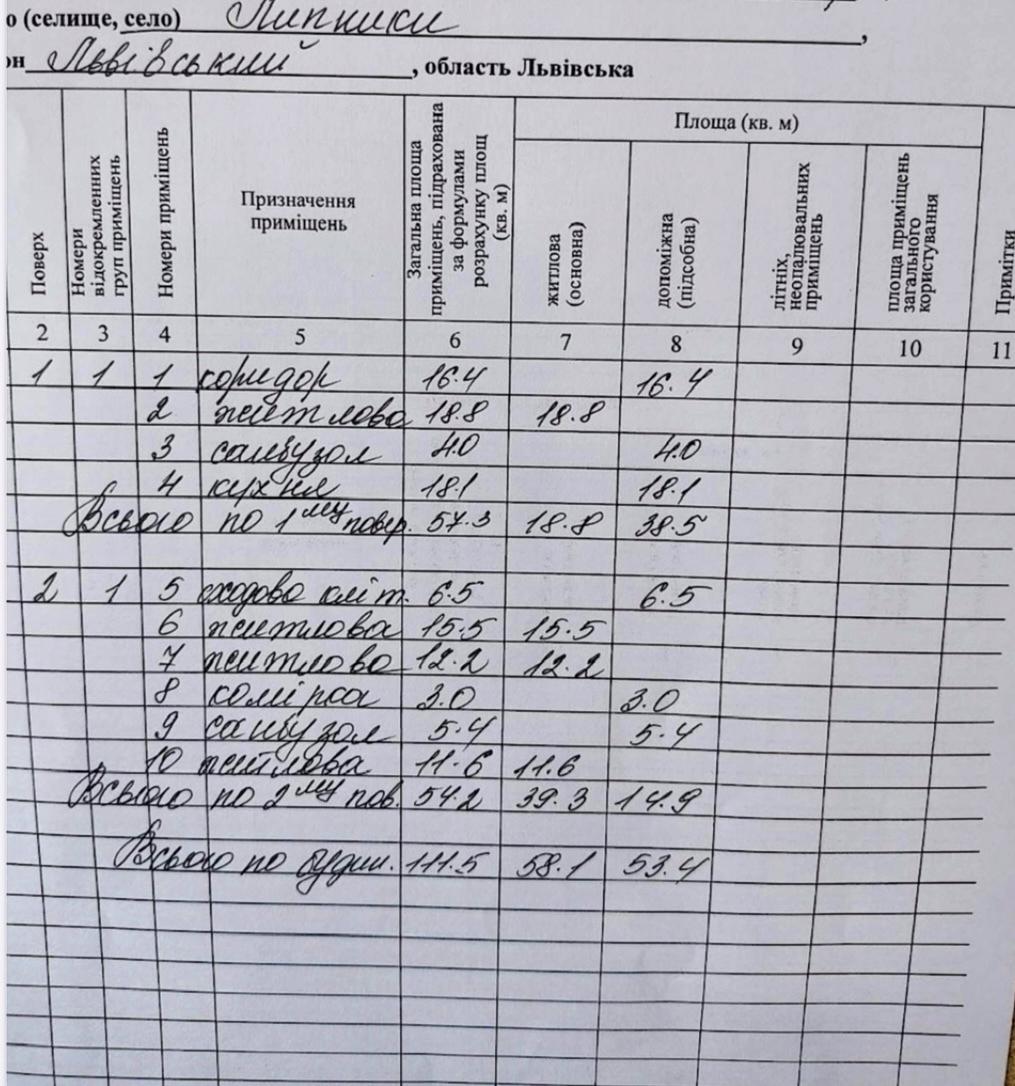 о (селище, село) Липники,
он Львівський, область Львівська
Поверх
Номери відокремленних груп приміщень
Номери приміщень
Призначення приміщень
Загальна площа приміщень, підрахована за формулами розрахунку площ (кв. м)
Площа (кв. м)
житлова (основна)
допоміжна (підсобна)
літніх, неопалювальних приміщень
площа приміщень загального користування
Примітки
2 3 4 5 6 7 8 9 10 11
1 1 1 коридор 16.4 16.4
2 житлова 18.8 18.8
3 санвузол 4.0 4.0
4 кухня 18.1 18.1
Всього по 1му повер. 57.3 18.8 38.5
2 1 5 сходова кліт. 6.5 6.5
6 житлова 15.5 15.5
7 житлова 12.2 12.2
8 комірка 3.0 3.0
9 санвузол 5.4 5.4
10 житлова 11.6 11.6
Всього по 2му пов. 54.2 39.3 14.9
Всього по будин. 111.5 58.1 53.4